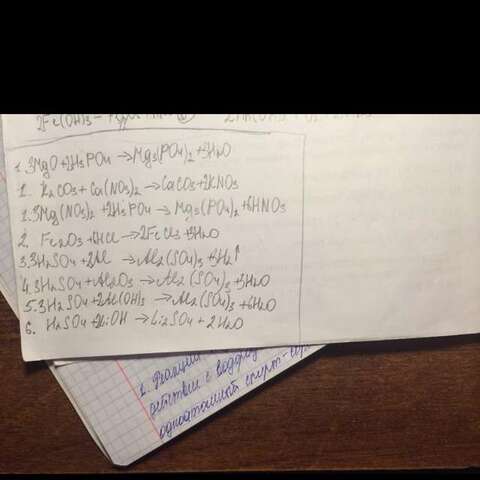 2Fe(OH)3
1. 3MgO + 2H3PO4 → Mg3(PO4)2 + 3H2O
1. K2CO3 + Ca(NO3)2 → CaCO3 + 2KNO3
1. 3Mg(NO3)2 + 2H3PO4 → Mg3(PO4)2 + 6HNO3
2. Fe2O3 + 6HCl → 2FeCl3 + 3H2O
3. 3H2SO4 + 2Al → Al2(SO4)3 + 3H2↑
4. 3H2SO4 + Al2O3 → Al2(SO4)3 + 3H2O
5. 3H2SO4 + 2Al(OH)3 → Al2(SO4)3 + 6H2O
6. H2SO4 + 2LiOH → Li2SO4 + 2H2O
2. Реакции
действии с водород
одноатомный спирт